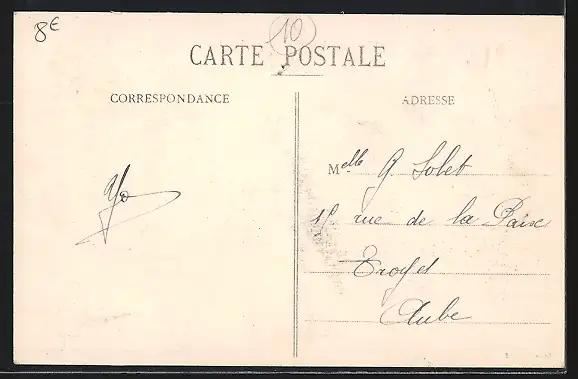 8€
10
CARTE POSTALE
CORRESPONDANCE
ADRESSE
Melle G Solet
rue de la Paix
Troyes
Aube